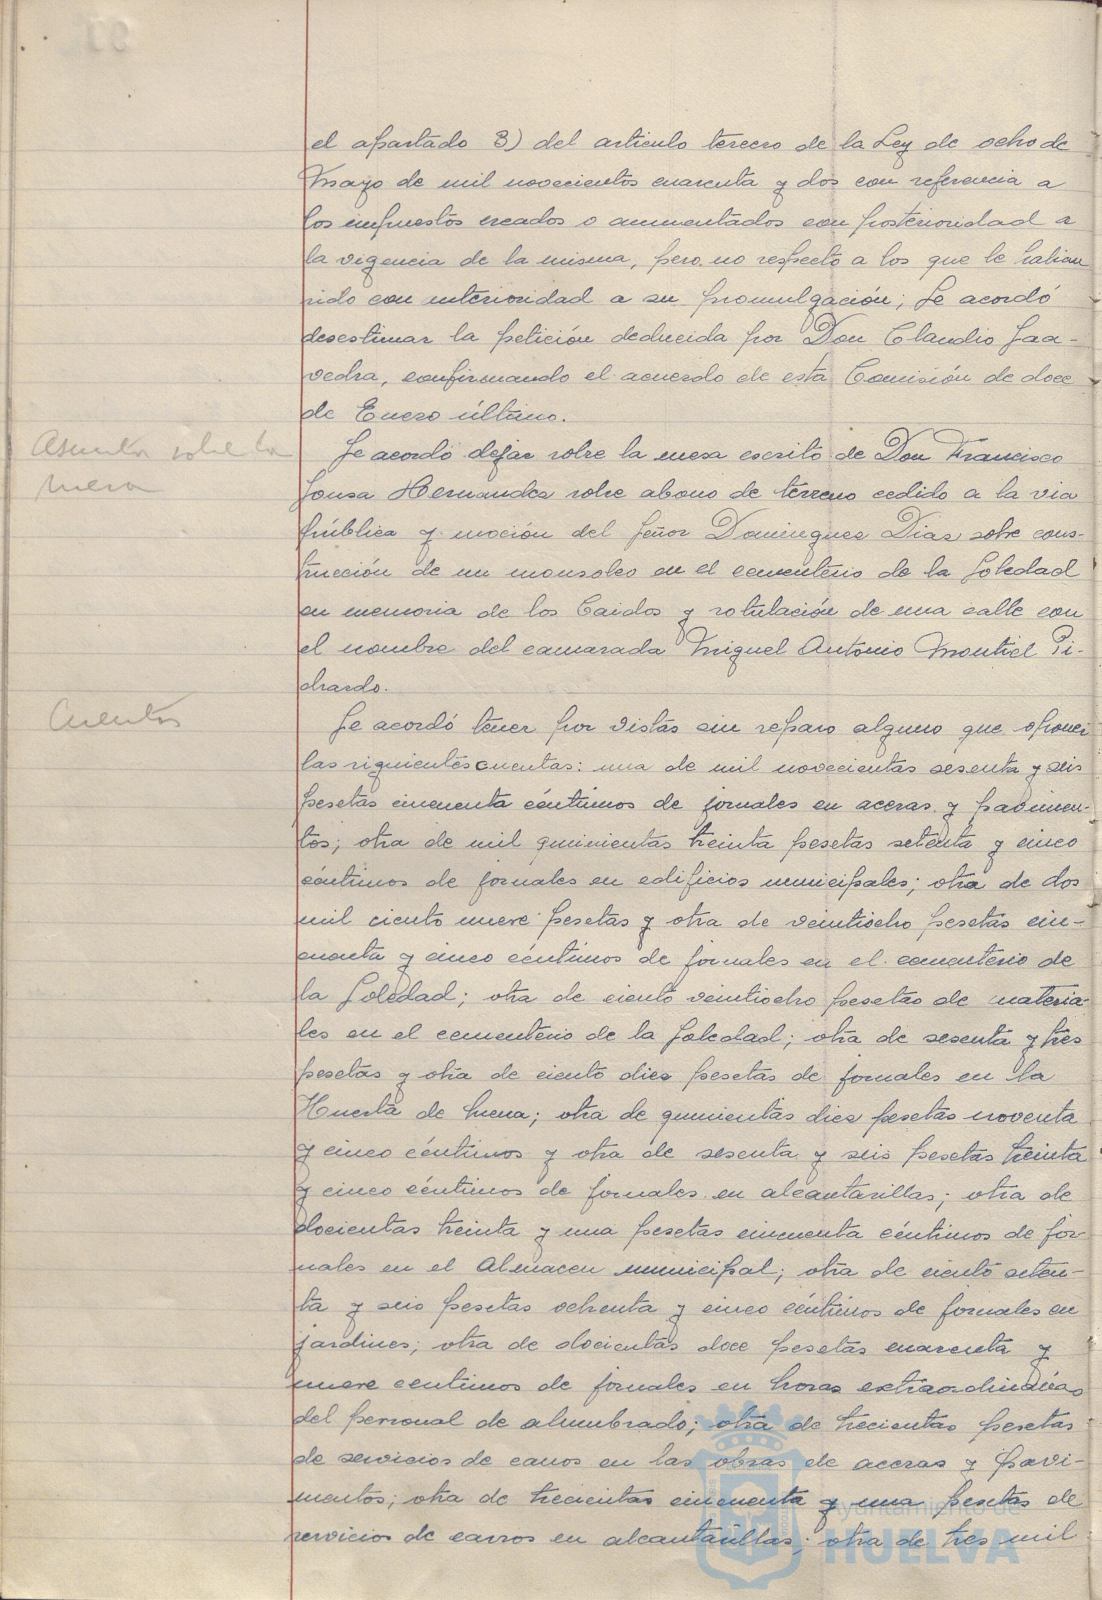 el apartado 3) del articulo tercero de la Ley de ocho de
Mayo de mil novecientos cuarenta y dos con referencia a
los impuestos creados o aumentados con posterioridad a
la vigencia de la misma, pero no respecto a los que le habian
sido con anterioridad a su promulgación; Se acordó
desestimar la petición deducida por Don Claudio Saa-
vedra, confirmando el acuerdo de esta Comisión de doce
de Enero último.
Asuntos sobre la
mesa
Se acordó dejar sobre la mesa escrito de Don Francisco
Sousa Hernandez sobre abono de terreno cedido a la via
pública y moción del Señor Dominguez Dias sobre cons-
trucción de un mausoleo en el cementerio de la Soledad
en memoria de los Caidos y rotulación de una calle con
el nombre del camarada Miguel Antonio Montiel Pi-
chardo.
Cuentas
Se acordó tener por vistas sin reparo alguno que oponer
las siguientes cuentas: una de mil novecientas sesenta y seis
pesetas cincuenta céntimos de jornales en aceras y pavimen-
tos; otra de mil quinientas treinta pesetas setenta y cinco
céntimos de jornales en edificios municipales; otra de dos
mil ciento nueve pesetas y otra de veintiocho pesetas cin-
cuenta y cinco céntimos de jornales en el cementerio de
la Soledad; otra de ciento veintiocho pesetas de materia-
les en el cementerio de la Soledad; otra de sesenta y tres
pesetas y otra de ciento diez pesetas de jornales en la
Huerta de Mena; otra de quinientas diez pesetas noventa
y cinco céntimos y otra de sesenta y seis pesetas treinta
y cinco céntimos de jornales en alcantarillas; otra de
docientas treinta y una pesetas cincuenta céntimos de jor-
nales en el Almacen municipal; otra de ciento seten-
ta y seis pesetas ochenta y cinco céntimos de jornales en
jardines; otra de docientas doce pesetas cuarenta y
nueve centimos de jornales en horas extraordinarias
del personal de alumbrado; otra de trecientas pesetas
de servicios de carros en las obras de aceras y pavi-
mentos; otra de trecientas cincuenta y una pesetas de
servicios de carros en alcantarillas; otra de tres mil
Ayuntamiento de
HUELVA